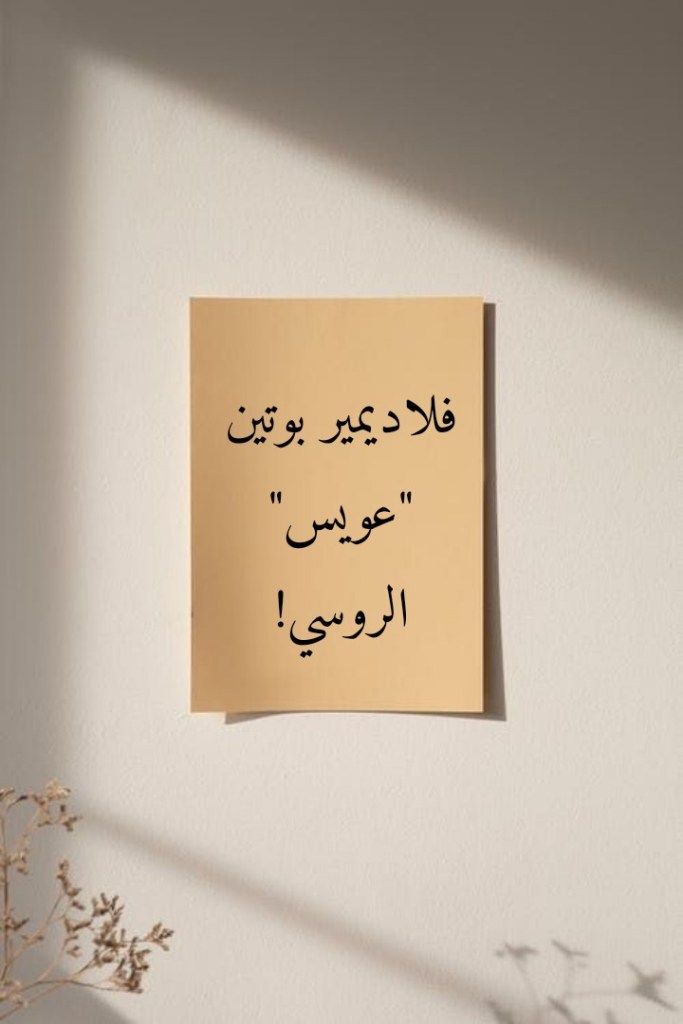 فلاديمير بوتين
"عويس"
الروسي!